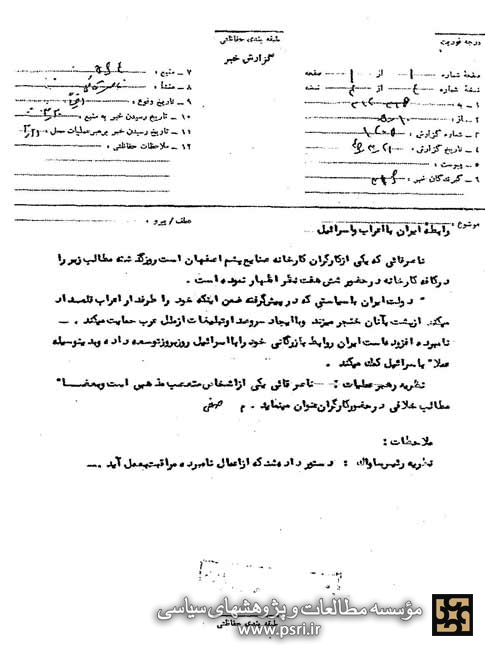 درجه فوریت
طبقه بندی حفاظتی
گزارش خبر
صفحه شماره ۱ از ۱ صفحه
نسخه شماره از نسخه
۱ ـ به
۲ ـ از
۳ ـ شماره گزارش
۴ ـ تاریخ گزارش
۵ ـ پیوست
۶ ـ گیرندگان خبر
۷ ـ منبع
۸ ـ منشأ
۹ ـ تاریخ وقوع
۱۰ ـ تاریخ رسیدن خبر به منبع
۱۱ ـ تاریخ رسیدن خبر برهبر عملیات محل
۱۲ ـ ملاحظات حفاظتی
موضوع : رابطه ایران با اعراب و اسرائیل
عطف / پیرو
ناصر قائی که یکی از کارگران کارخانه صنایع پشم اصفهان است روز گذشته مطالب زیر را
در کافه کارخانه در حضور شش هفت نفر اظهار نموده است .
" دولت ایران با سیاستی که در پیش گرفته ضمن اینکه خود را طرفدار اعراب قلمداد
میکند از پشت بآنان خنجر میزند و با ایجاد سر و صدا و تبلیغات از ملل عرب حمایت میکند
نامبرده افزوده است ایران روابط بازرگانی خود را با اسرائیل روز بروز توسعه داده و بدینوسیله
عملا" با سرائیل کمک میکند .
نظریه رهبر عملیات : ناصر قائی یکی از اشخاص متعصب مذهبی است و بعضا"
مطالب خلافی در حضور کارگران عنوان مینماید . م
ملاحظات :
نظریه رئیس ساواک : دستور داده شد که از اعمال نامبرده مراقبت بعمل آید .
طبقه بندی حفاظتی
مؤسسه مطالعات و پژوهشهای سیاسی
www.psri.ir